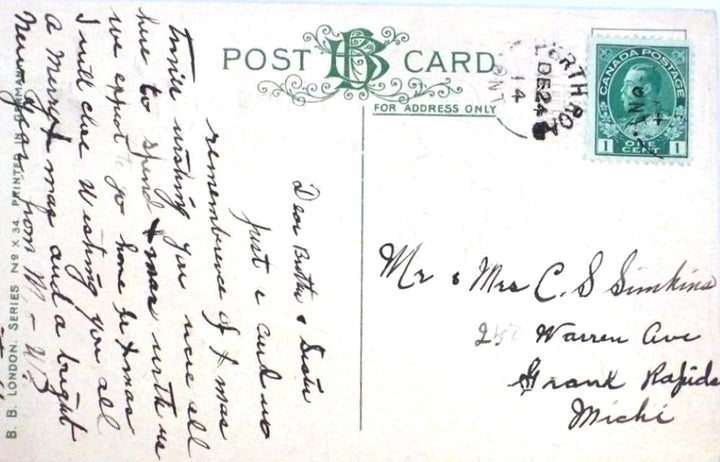 POST BB CARD
FOR ADDRESS ONLY
PERTH RD.
DE 24
14
ONT
CANADA POSTAGE
1 ONE CENT 1
Dear Brother & Sister
Just a card in
remembrence of Xmas
wishing you were all
here to spend Xmas with us
we expect to go home for Xmas
I will close Wishing you all
a Merry Xmas and a bright
New Year from
Mr & Mrs C. S Simkins
Warren Ave
Grank Rapids
Michi
B. B. LONDON. SERIES No X 34. PRINTED IN GERMANY